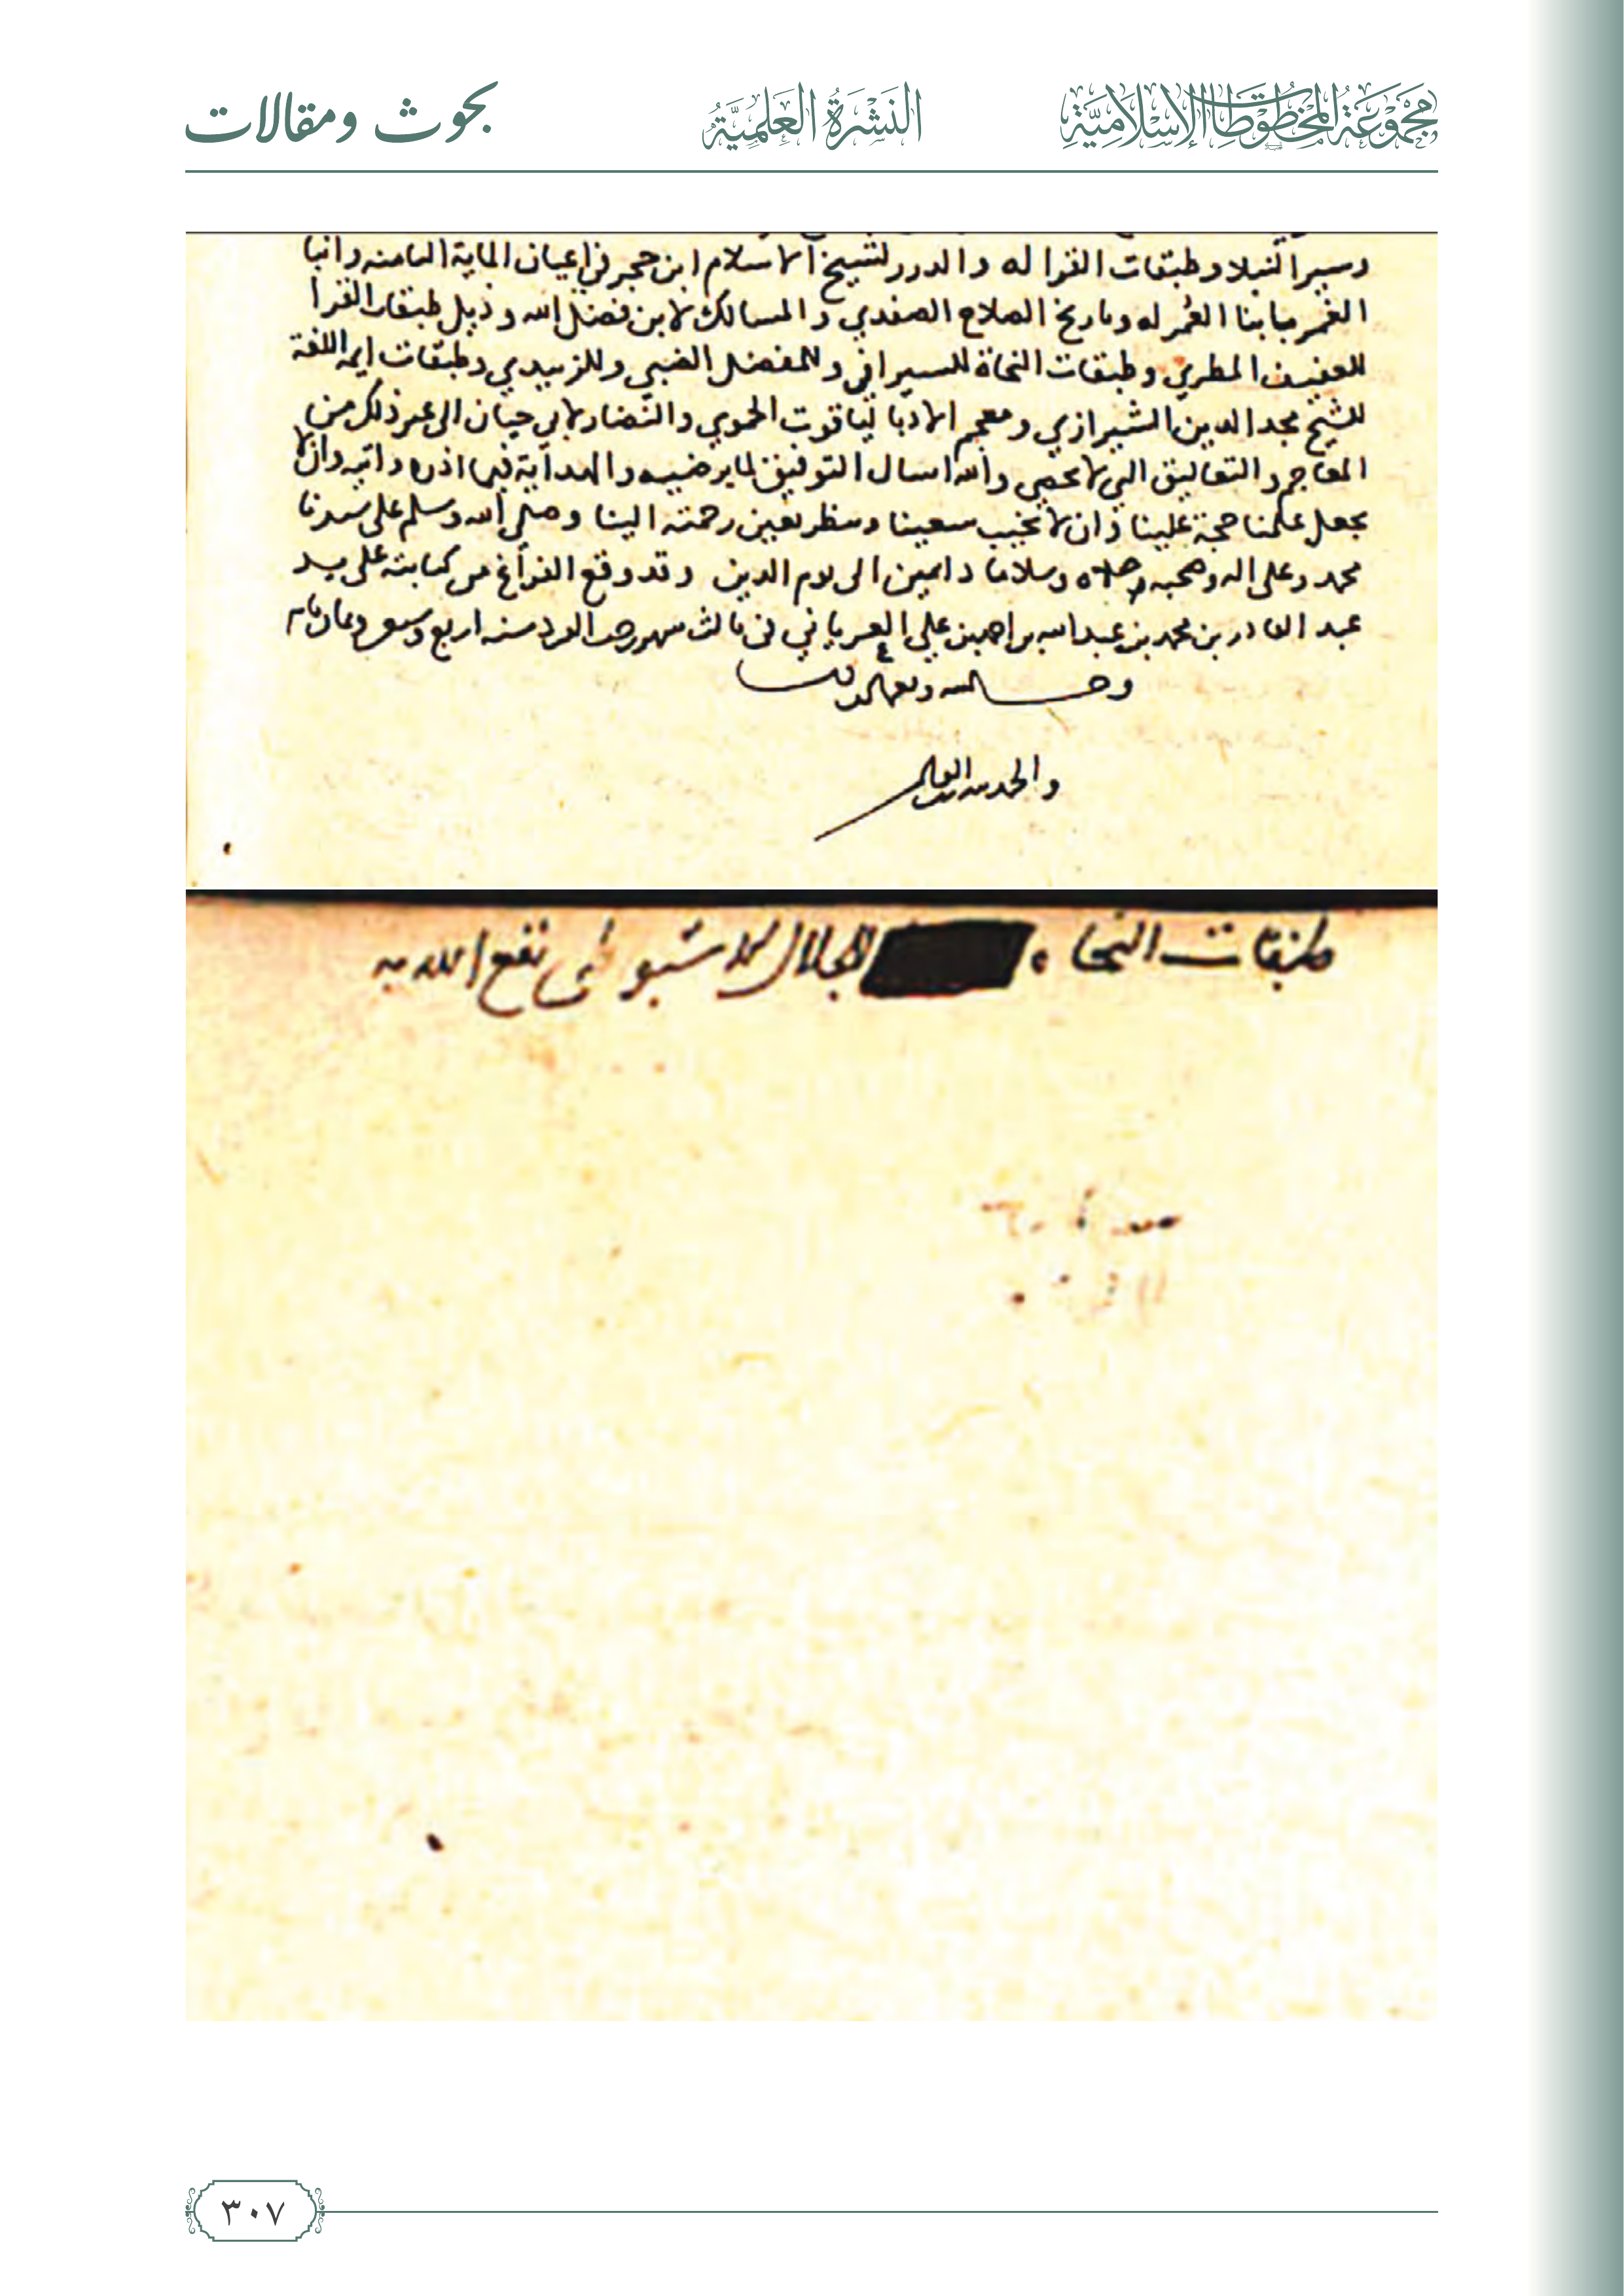 مَجْمُوعَةُ المَخْطُوطَاتِ الإِسْلَامِيَّةِ
النَّشْرَةُ العِلْمِيَّةُ
بحوث ومقالات
وسير النبلا وطبقات القرا له والدرر لشيخ الاسلام ابن حجر في اعيان الماية الثامنه وانبا
الغمر بابنا العُمر له وتاريخ الصلاح الصفدي والمسالك لابن فضل الله وذيل طبقات القرا
للعفيف المطري وطبقات النحاة للسيرافي وللمفضل الضبي وللزبيدي وطبقات ايمه اللغة
للشيخ مجد الدين الشيرازي ومعجم الادبا لياقوت الحموي والنضار لابي حيان الى غير ذلك من
المعاجم والتعاليق التي لا تحصى والله اسال التوفيق لما يرضيه والهداية فيما اذره واتيه وان لا
يجعل علمنا حجة علينا وان لا يخيب سعينا وينظر بعين رحمته الينا وصلى الله وسلم على سيدنا
محمد وعلى اله وصحبه صلاه وسلاما دايمين الى يوم الدين وقد وقع الفراغ من كتابته على يد
عبد القادر بن محمد بن عبد الله بن علي في ثالث شهر سنه اربع
والحمد لله
طبقات النحاه للجلال الاسيوطي نفع الله به
٣٠٧